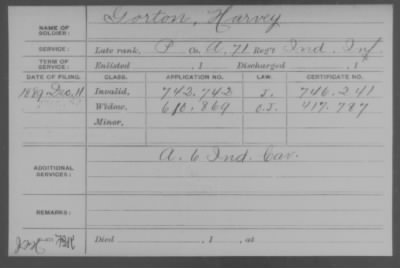 NAME OF SOLDIER: Gorton, Harvey
SERVICE: Late rank, P Co. A, 71 Reg't Ind. Inf.
TERM OF SERVICE: Enlisted , 1 Discharged , 1
DATE OF FILING. CLASS. APPLICATION NO. LAW. CERTIFICATE NO.
1889 Dec. 11 Invalid, 742.742 746.241
Widow, 610.869 417.787
Minor,
ADDITIONAL SERVICES: A. 6 Ind. Cav.
REMARKS:
Died , 1 , at